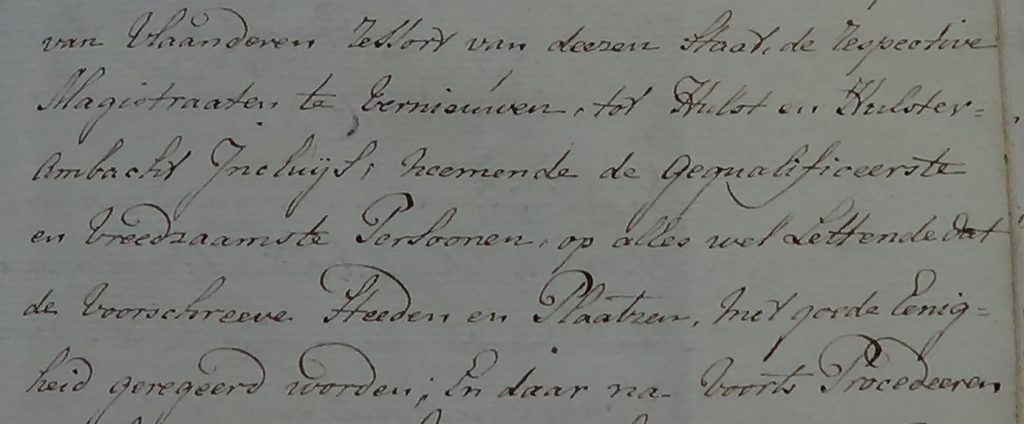 van Vlaanderen ressort van deezen Staat, de respective
Magistraaten te vernieuwen, tot Hulst en Hulster-
Ambacht Incluijs; neemende de gequalificeerste
en vreedzaamste Persoonen, op alles wel Lettende dat
de voorschreeve Steeden en Plaatzen, met goede Eenig-
heid geregeerd worden; En daar na voorts Procedeeren